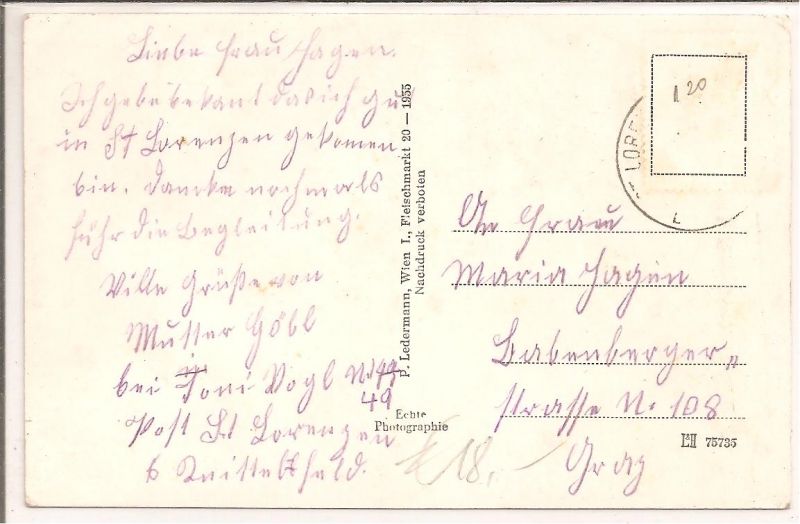 Liebe Frau Hagen.
Ich gebe bekant das ich gut
in St Lorenzen gekomen
bin. Dancke nochmals
führ die Begleitung.
Ville Grüße von
Mutter Göbl
bei Toni Vogl Nr 49
49
Post St Lorenzen
b Knittelfeld.
P. Ledermann, Wien I., Fleischmarkt 20 — 1955
Nachdruck verboten
Echte
Photographie
18.
1 20
LOR
An Frau
Maria Hagen
Babenberger„
strasse No 108
Graz
75735